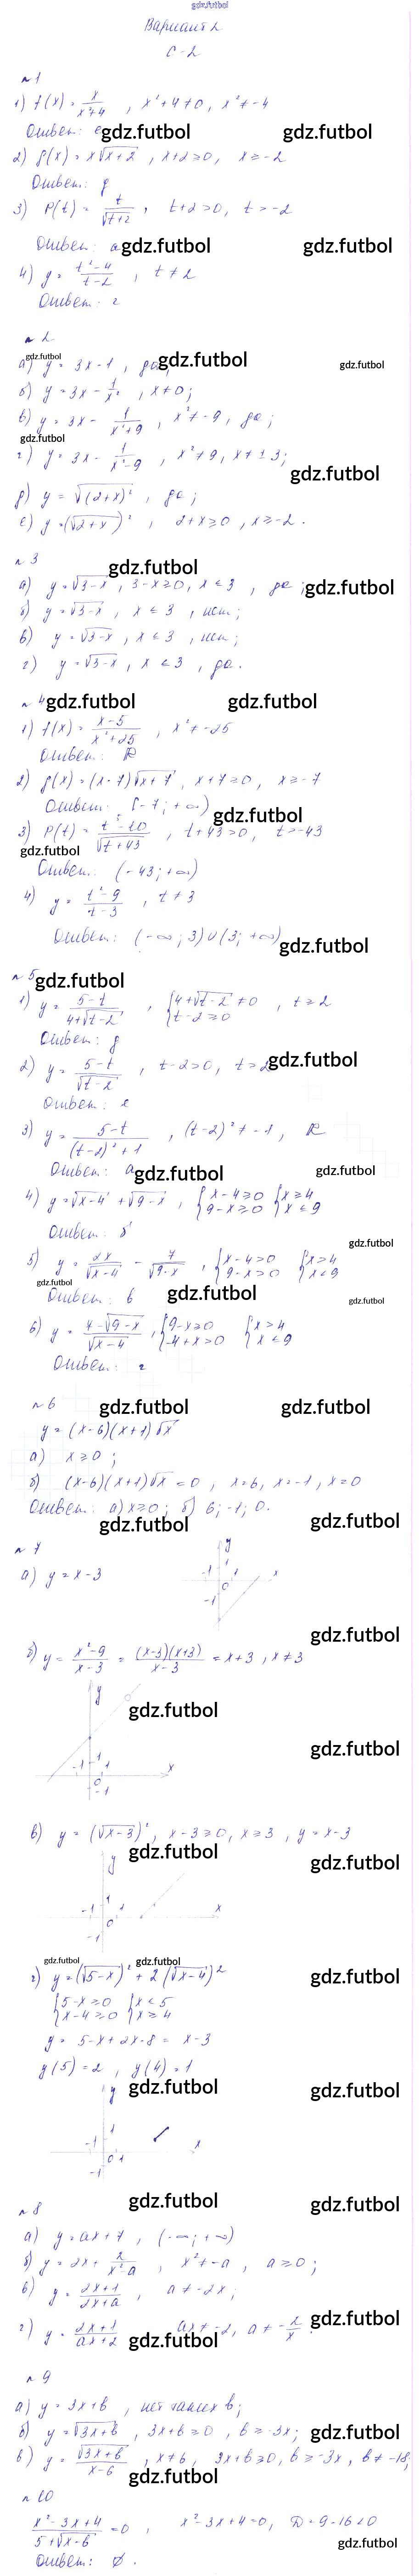 gdz.futbol
Вариант 2
С-2
№1
1) f(x) = x/(x²+4) , x²+4≠0, x²≠-4
Ответ: е
gdz.futbol gdz.futbol
2) f(x) = x√(x+2) , x+2≥0, x≥-2
Ответ: д
3) P(t) = t/√(t+2) , t+2>0, t>-2
Ответ: а
gdz.futbol gdz.futbol
4) y = (t²-4)/(t-2) , t≠2
Ответ: г
№2
gdz.futbol gdz.futbol gdz.futbol
а) y = 3x-1, да;
б) y = 3x - 1/x² , x≠0;
в) y = 3x - 1/(x²+9) , x²≠-9, да;
gdz.futbol
г) y = 3x - 1/(x²-9) , x²≠9, x≠±3;
gdz.futbol
д) y = √(2+x)² , да;
е) y = (√(2+x))² , 2+x≥0, x≥-2.
№3
gdz.futbol
а) y = √(3-x), 3-x≥0, x≤3 , да;
gdz.futbol
б) y = √(3-x), x≤3, нет;
в) y = √(3-x), x≤3, нет;
г) y = √(3-x), x≤3, да.
№4
gdz.futbol gdz.futbol
1) f(x) = (x-5)/(x²+25) , x²≠-25
Ответ: R
2) f(x) = (x-7)√(x+7) , x+7≥0, x≥-7
Ответ: [-7; +∞)
gdz.futbol
3) P(t) = /√(t+43) , t+43>0, t>-43
gdz.futbol
Ответ: (-43; +∞)
4) y = (t²-9)/(t-3) , t≠3
Ответ: (-∞; 3)∪(3; +∞)
gdz.futbol
№5
gdz.futbol
1) y = (5-t)/(4+√(t-2)) , {4+√(t-2)≠0 t-2≥0 , t≥2
Ответ: д
2) y = (5-t)/√(t-2) , t-2>0, t>2
gdz.futbol
Ответ: е
3) y = (5-t)/((t-2)²+1) , (t-2)²≠-1, R
Ответ: а
gdz.futbol gdz.futbol
4) y = √(x-4) + √(9-x) , {x-4≥0 9-x≥0 {x≥4 x≤9
Ответ: б
gdz.futbol
5) y = 2x/√(x-4) - 7/√(9-x) , {x-4>0 9-x>0 {x>4 x<9
gdz.futbol
Ответ: в
gdz.futbol gdz.futbol
6) y = (4-√(9-x))/√(x-4) , {9-x≥0 -4+x>0 {x>4 x≤9
Ответ: г
№6
gdz.futbol gdz.futbol
y = (x-6)(x+1)√x
а) x≥0;
б) (x-6)(x+1)√x = 0, x=6, x=-1, x=0
Ответ: а) x≥0; б) 6; -1; 0.
gdz.futbol gdz.futbol
№7
а) y = x-3
y
-1 1 0 1 x
-1
gdz.futbol
б) y = (x²-9)/(x-3) = (x-3)(x+3)/(x-3) = x+3, x≠3
y
gdz.futbol
gdz.futbol
-1 1 0 1 x
-1
в) y = (√(x-3))², x-3≥0, x≥3, y = x-3
gdz.futbol
y
gdz.futbol
-1 1 0 1 x
-1
gdz.futbol gdz.futbol
г) y = (√(5-x))² + 2(√(x-4))²
gdz.futbol
{5-x≥0 x-4≥0 {x≤5 x≥4
y = 5-x+2x-8 = x-3
y(5)=2, y(4)=1
y gdz.futbol gdz.futbol
-1 1 0 1 x
-1
gdz.futbol gdz.futbol
№8
а) y = ax+7, (-∞; +∞)
б) y = 2x + 2/(x²-a) , x²≠-a, a≥0;
в) y = (2x+1)/(2x+a) , a≠-2x;
gdz.futbol
г) y = (2x+1)/(ax+2) ax≠-2, a≠-2/x.
gdz.futbol
№9
а) y = 3x+b, нет таких b;
б) y = √(3x+b), 3x+b≥0, b≥-3x;
gdz.futbol
в) y = √(3x+b)/(x-6) , x≠6, 3x+b≥0, b≥-3x, b≠-18;
gdz.futbol
№10
(x²-3x+4)/(5+√(x-6)) = 0 , x²-3x+4=0, D=9-16<0
gdz.futbol
Ответ: ∅.